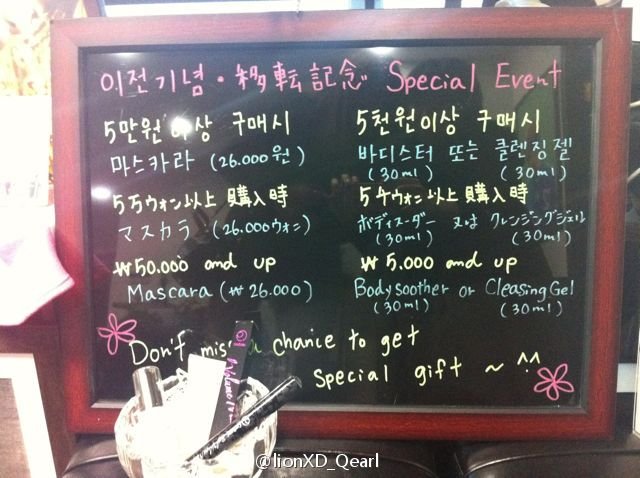 이전기념・移転記念 Special Event
5만원 이상 구매시
마스카라 (26.000원)
5万ウォン以上 購入時
マスカラ (26.000ウォン)
₩50.000 and up
Mascara (₩26.000)
5천원이상 구매시
바디스터 또는 클렌징젤
(30ml) (30ml)
5千ウォン以上 購入時
ボディスーダー 又は クレンジングジェル
(30ml) (30ml)
₩ 5.000 and up
Body soother or Cleasing Gel
(30ml) (30ml)
Don't miss a chance to get
special gift ~ ^^
@lionXD_Qearl